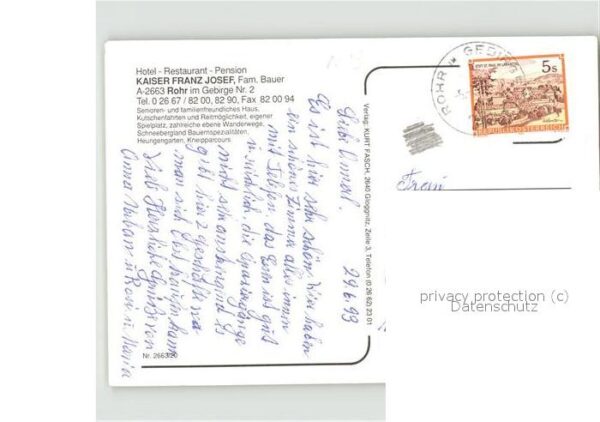 Hotel - Restaurant - Pension
KAISER FRANZ JOSEF, Fam. Bauer
A-2663 Rohr im Gebirge Nr. 2
Tel. 0 26 67 / 82 00, 82 90, Fax 82 00 94
Senioren- und familienfreundliches Haus,
Kutschenfahrten und Reitmöglichkeit, eigener
Spielplatz, zahlreiche ebene Wanderwege,
Schneebergland Bauernspezialitäten,
Heurigengarten, Kneipparcours
Nr. 2663/20
Verlag KURT FASCH, 2640 Gloggnitz, Zeile 3, Telefon (0 26 62) 23 01
29.6.93
Liebe
Es ist hier sehr schön. Wir haben
ein schönes Zimmer alles innen
mit Telefon, das Essen ist gut
die Spaziergänge
nicht sehr anstrengend. Es
gibt hier 2 Geschäfte wo
man sich etwas kaufen kann
Viele Herzliche Grüße von
Anna
Maria
ROHR GEBIRGE
5 S
REPUBLIK ÖSTERREICH
privacy protection (c)
Datenschutz